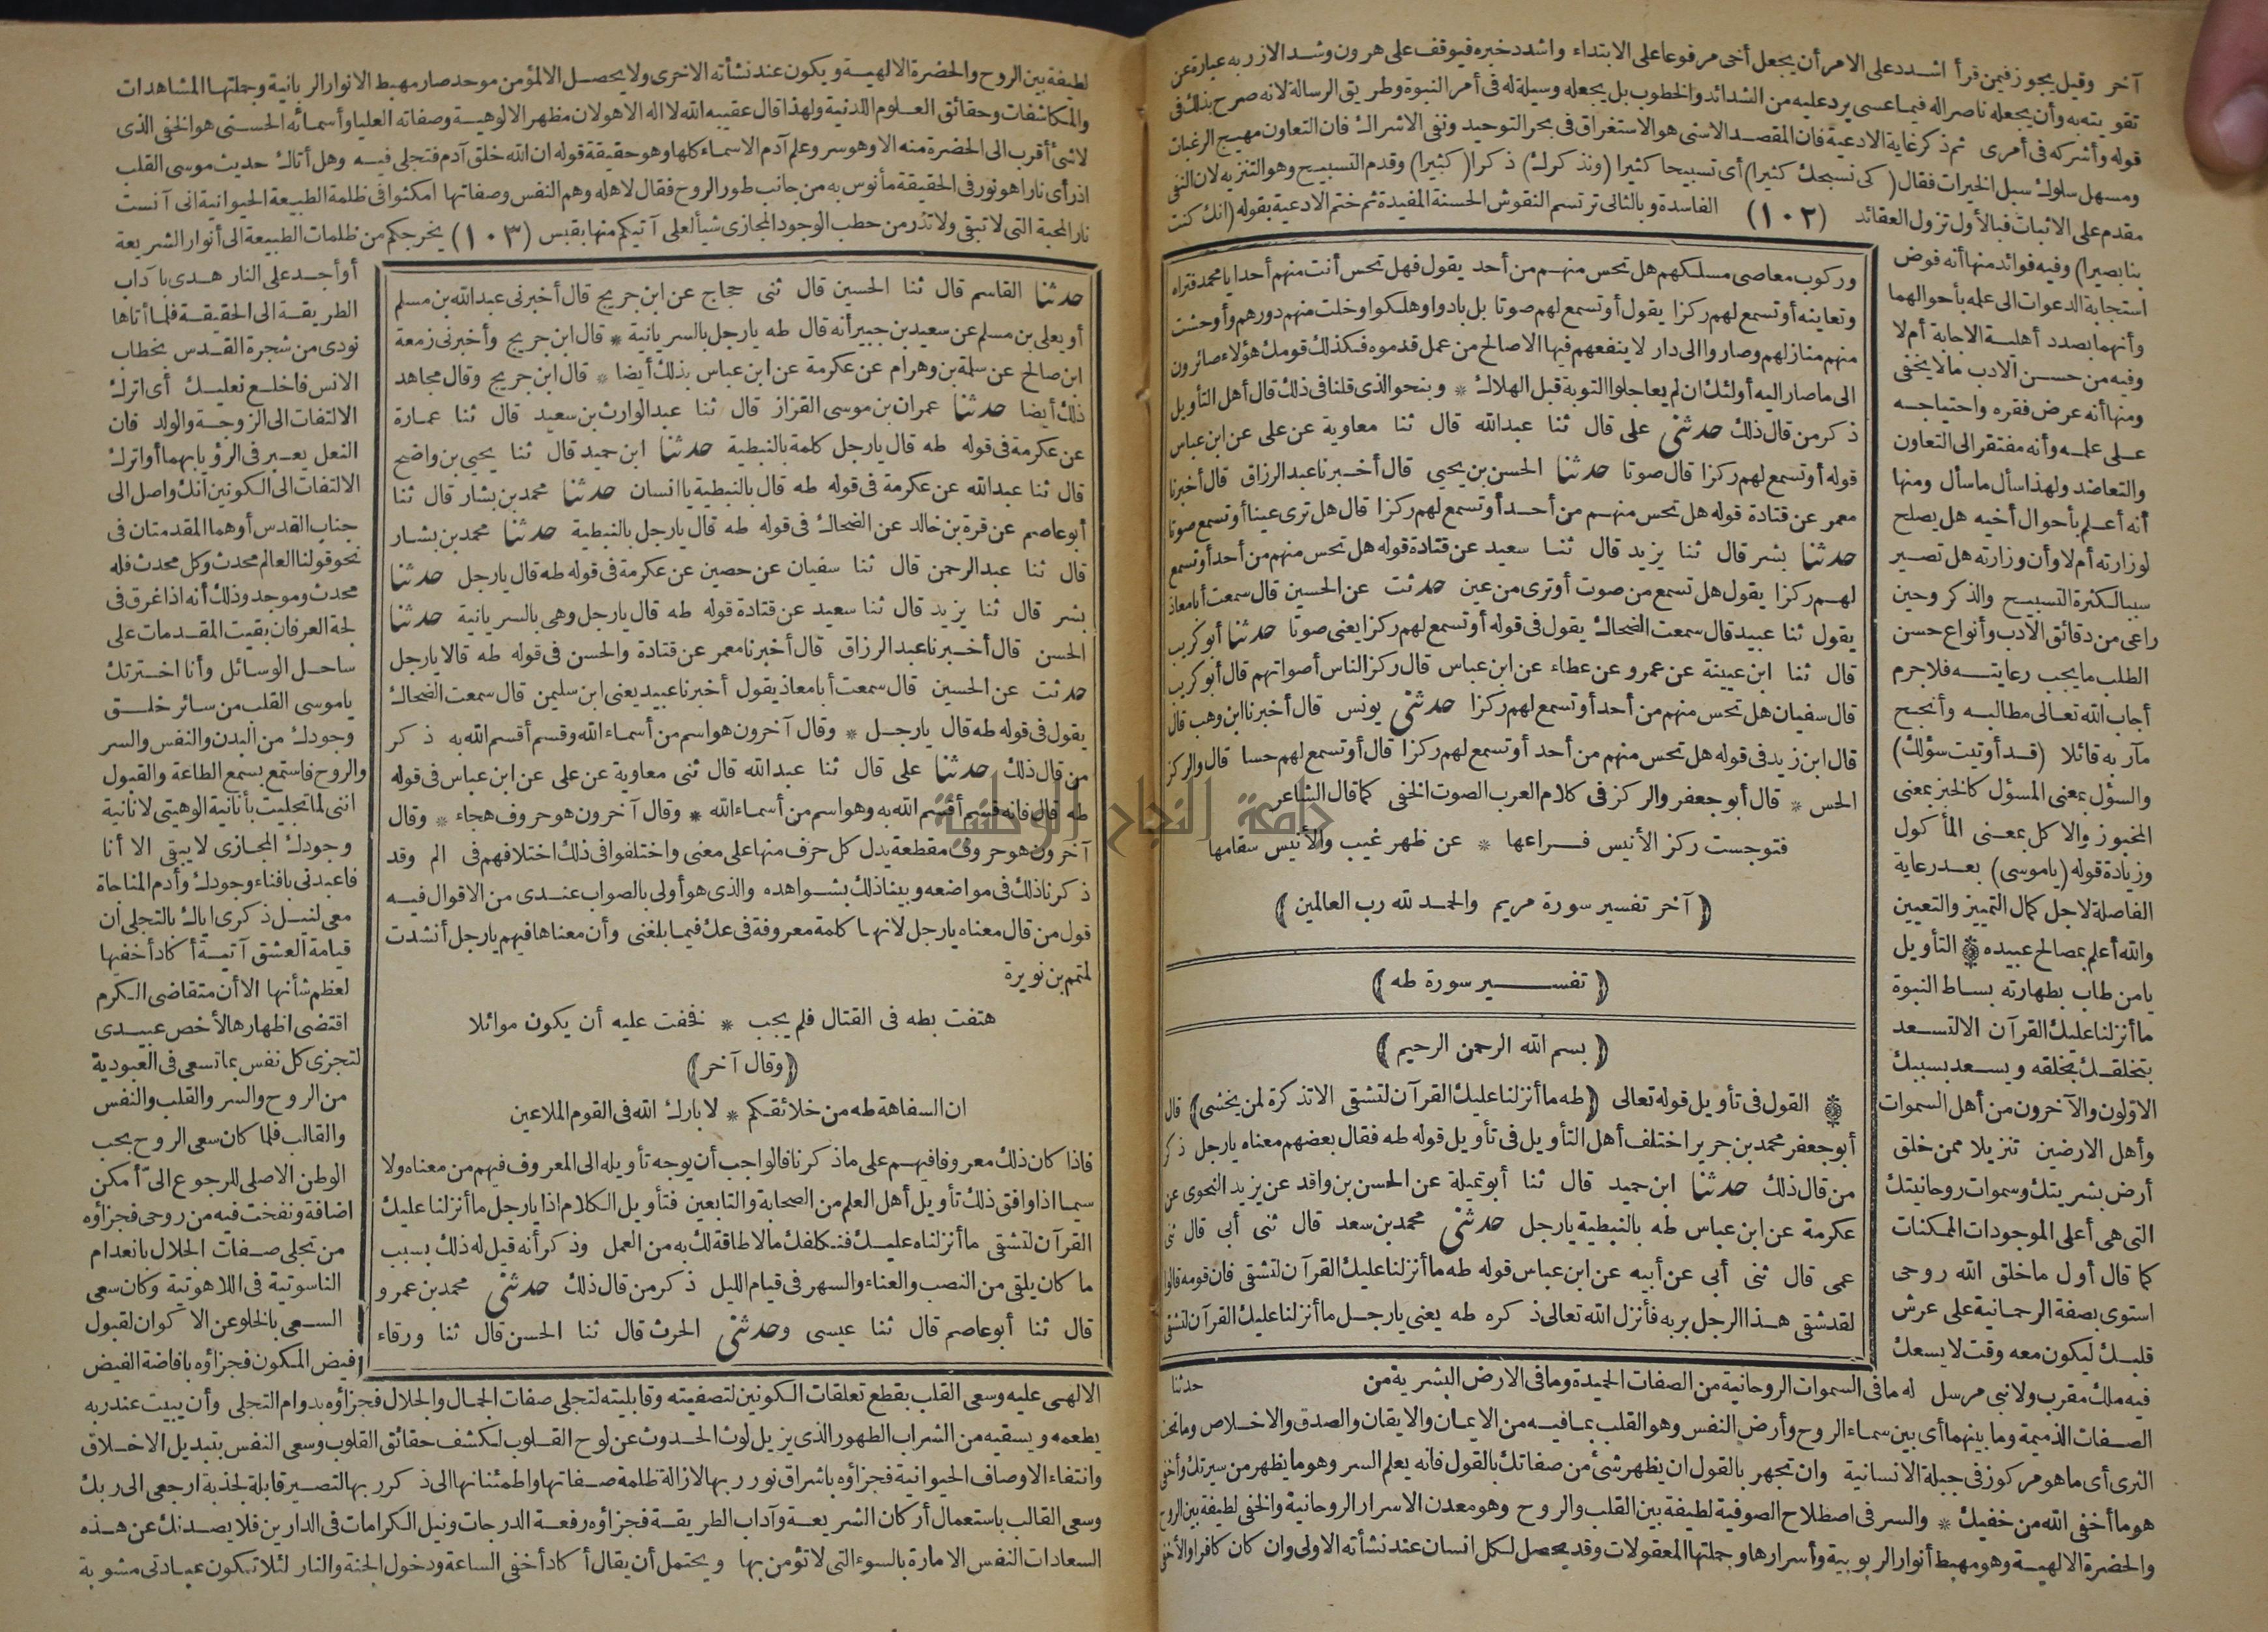 آخر وقيل يجوز فيمن قرأ اشدد على الامر أن يجعل أخى مرفوعا على الابتداء واشدد خبره فيوقف على هرون وشد الازر به عبارة عن
تقويته به وأن يجعله ناصرا له فيما عسى يرد عليه من الشدائد والخطوب بل يجعله وسيلة له فى أمر النبوة وطريق الرسالة لانه صرح بذلك فى
قوله وأشركه فى أمرى ثم ذكر غاية الادعية فان المقصد الاسنى هو الاستغراق فى بحر التوحيد ونفى الاشراك فان التعاون مهيج الرغبات
ومسهل سلوك سبل الخيرات فقال (كى نسبحك كثيرا) أى تسبيحا كثيرا (ونذكرك) ذكرا (كثيرا) وقدم التسبيح وهو التنزيه لان النفى
مقدم على الاثبات فبالأول تزول العقائد (١٠٢) الفاسدة وبالثانى ترتسم النقوش الحسنة المفيدة ثم ختم الادعية بقوله (انك كنت
بنا بصيرا) وفيه فوائد منها أنه فوض
استجابة الدعوات الى علمه بأحوالهما
وأنهما بصدد أهلية الاجابة أم لا
وفيه من حسن الادب مالا يخفى
ومنها أنه عرض فقره واحتياجه
على علمه وأنه مفتقر الى التعاون
والتعاضد ولهذا سأل ماسأل ومنها
أنه أعلم بأحوال أخيه هل يصلح
لوزارته أم لا وأن وزارته هل تصير
سببا لكثرة التسبيح والذكر وحين
راعى من دقائق الادب وأنواع حسن
الطلب ما يجب رعايته فلا جرم
أجاب الله تعالى مطالبه وأنجح
مآربه قائلا (قد أوتيت سؤلك)
والسؤل بمعنى المسؤل كالخبز بمعنى
المخبوز والاكل بمعنى المأكول
وزيادة قوله (ياموسى) بعد رعاية
الفاصلة لاجل كمال التمييز والتعيين
والله أعلم بمصالح عبيده ۞ التأويل
يامن طاب بطهارته بساط النبوة
ما أنزلنا عليك القرآن الا لتسعد
بتخلقك بخلقه ويسعد بسببك
الاولون والآخرون من أهل السموات
وأهل الارضين تنزيلا ممن خلق
أرض بشريتك وسموات روحانيتك
التى هى أعلى الموجودات الممكنات
كما قال أول ما خلق الله روحى
استوى بصفة الرحمانية على عرش
قلبك ليكون معه وقت لا يسعك
وركوب معاصى مسلكهم هل تحس منهم من أحد يقول فهل تحس أنت منهم أحدا يا محمد فتراه
وتعاينه أو تسمع لهم ركزا يقول أو تسمع لهم صوتا بل بادوا وهلكوا وخلت منهم دورهم وأوحشت
منهم منازلهم وصاروا الى دار لا ينفعهم فيها الا صالح من عمل قدموه فكذلك قومك هؤلاء صائرون
الى ما صار اليه أولئك ان لم يعاجلوا التوبة قبل الهلاك * وبنحو الذى قلنا فى ذلك قال أهل التأويل
ذكر من قال ذلك حدثنى على قال ثنا عبد الله قال ثنا معاوية عن على عن ابن عباس
قوله أو تسمع لهم ركزا قال صوتا حدثنا الحسن بن يحيى قال أخبرنا عبد الرزاق قال أخبرنا
معمر عن قتادة قوله هل تحس منهم من أحد أو تسمع لهم ركزا قال هل ترى عينا أو تسمع صوتا
حدثنا بشر قال ثنا يزيد قال ثنا سعيد عن قتادة قوله هل تحس منهم من أحد أو تسمع
لهم ركزا يقول هل تسمع من صوت أو ترى من عين حدثت عن الحسين قال سمعت أبا معاذ
يقول ثنا عبيد قال سمعت الضحاك يقول فى قوله أو تسمع لهم ركزا يعنى صوتا حدثنا أبو كريب
قال ثنا ابن عيينة عن عمرو عن عطاء عن ابن عباس قال ركز الناس أصواتهم قال أبو كريب
قال سفيان هل تحس منهم من أحد أو تسمع لهم ركزا حدثنى يونس قال أخبرنا ابن وهب قال
قال ابن زيد فى قوله هل تحس منهم من أحد أو تسمع لهم ركزا قال أو تسمع لهم حسا قال والركز
الحس * قال أبو جعفر والركز فى كلام العرب الصوت الخفى كما قال الشاعر
فتوجست ركز الأنيس فراعها * عن ظهر غيب والأنيس سقامها
﴿آخر تفسير سورة مريم والحمد لله رب العالمين﴾
﴿تفسير سورة طه﴾
﴿بسم الله الرحمن الرحيم﴾
۞ القول فى تأويل قوله تعالى ﴿طه ما أنزلنا عليك القرآن لتشقى الا تذكرة لمن يخشى﴾ قال
أبو جعفر محمد بن جرير اختلف أهل التأويل فى تأويل قوله طه فقال بعضهم معناه يا رجل ذكر
من قال ذلك حدثنا ابن حميد قال ثنا أبو تميلة عن الحسن بن واقد عن يزيد النحوى عن
عكرمة عن ابن عباس طه بالنبطية يا رجل حدثنى محمد بن سعد قال ثنى أبى قال ثنى
عمى قال ثنى أبى عن أبيه عن ابن عباس قوله طه ما أنزلنا عليك القرآن لتشقى فان قومه قالوا
لقد شقى هذا الرجل بربه فأنزل الله تعالى ذكره طه يعنى يا رجل ما أنزلنا عليك القرآن لتشقى
حدثنا
فيه ملك مقرب ولا نبى مرسل له ما فى السموات الروحانية من الصفات الحميدة وما فى الارض البشرية من
الصفات الذميمة وما بينهما أى بين سماء الروح وأرض النفس وهو القلب بما فيه من الايمان والايقان والصدق والاخلاص وما تحت
الثرى أى ما هو مركوز فى جبلة الانسانية وان تجهر بالقول ان يظهر شئ من صفاتك بالقول فانه يعلم السر وهو ما يظهر من سيرتك وأخفى
هو ما أخفى الله من خفيك * والسر فى اصطلاح الصوفية لطيفة بين القلب والروح وهو معدن الاسرار الروحانية والخفى لطيفة بين الروح
والحضرة الالهية وهو مهبط أنوار الربوبية وأسرارها وجملتها المعقولات وقد يحصل لكل انسان عند نشأته الاولى وان كان كافرا والأخفى
لطيفة بين الروح والحضرة الالهية ويكون عند نشأته الاخرى ولا يحصل الا لمؤمن موحد صار مهبط الانوار الربانية وجملتها المشاهدات
والمكاشفات وحقائق العلوم اللدنية ولهذا قال عقيبه الله لا اله الا هو لان مظهر الالوهية وصفاته العليا وأسمائه الحسنى هو الخفى الذى
لا شئ أقرب الى الحضرة منه الا وهو سر وعلم آدم الاسماء كلها وهو حقيقة قوله ان الله خلق آدم فتجلى فيه وهل أتاك حديث موسى القلب
اذ رأى نارا هو نور فى الحقيقة مأنوس به من جانب طور الروح فقال لاهله وهم النفس وصفاتها امكثوا فى ظلمة الطبيعة الحيوانية انى آنست
نار المحبة التى لا تبقى ولا تذر من حطب الوجود المجازى شيأ لعلى آتيكم منها بقبس (١٠٣) يخرجكم من ظلمات الطبيعة الى أنوار الشريعة
أو أجد على النار هدى بآداب
الطريقة الى الحقيقة فلما أتاها
نودى من شجرة القدس بخطاب
الانس فاخلع نعليك أى اترك
الالتفات الى الزوجة والولد فان
النعل يعبر فى الرؤيا بهما أو اترك
الالتفات الى الكونين انك واصل الى
جناب القدس أو هما المقدمتان فى
نحو قولنا العالم محدث وكل محدث فله
محدث وموجد وذلك أنه اذا غرق فى
لجة العرفان بقيت المقدمات على
ساحل الوسائل وأنا اخترتك
ياموسى القلب من سائر خلق
وجودك من البدن والنفس والسر
والروح فاستمع بسمع الطاعة والقبول
اننى لما تجليت بأنانية الوهيتى لانانية
وجودك المجازى لا يبقى الا أنا
فاعبدنى بافناء وجودك وأدم المناجاة
معى لنيل ذكرى اياك بالتجلى ان
قيامة العشق آتية أكاد أخفيها
لعظم شأنها الا أن متقاضى الكرم
اقتضى اظهارها لأخص عبيدى
لتجزى كل نفس بما تسعى فى العبودية
من الروح والسر والقلب والنفس
والقالب فلما كان سعى الروح بحب
الوطن الاصلى للرجوع الى أمكن
اضافة ونفخت فيه من روحى فجزاؤه
من تجلى صفات الجلال بانعدام
الناسوتية فى اللاهوتية وكان سعى
السعى بالخلو عن الاكوان لقبول
فيض المكون فجزاؤه بافاضة الفيض
حدثنا القاسم قال ثنا الحسين قال ثنى حجاج عن ابن جريج قال أخبرنى عبد الله بن مسلم
أو يعلى بن مسلم عن سعيد بن جبير أنه قال طه يا رجل بالسريانية * قال ابن جريج وأخبرنى زمعة
ابن صالح عن سلمة بن وهرام عن عكرمة عن ابن عباس بذلك أيضا * قال ابن جريج وقال مجاهد
ذلك أيضا حدثنا عمران بن موسى القزاز قال ثنا عبد الوارث بن سعيد قال ثنا عمارة
عن عكرمة فى قوله طه قال يا رجل كلمة بالنبطية حدثنا ابن حميد قال ثنا يحيى بن واضح
قال ثنا عبد الله عن عكرمة فى قوله طه قال بالنبطية يا انسان حدثنا محمد بن بشار قال ثنا
أبو عاصم عن قرة بن خالد عن الضحاك فى قوله طه قال يا رجل بالنبطية حدثنا محمد بن بشار
قال ثنا عبد الرحمن قال ثنا سفيان عن حصين عن عكرمة فى قوله طه قال يا رجل حدثنا
بشر قال ثنا يزيد قال ثنا سعيد عن قتادة قوله طه قال يا رجل وهى بالسريانية حدثنا
الحسن قال أخبرنا عبد الرزاق قال أخبرنا معمر عن قتادة والحسن فى قوله طه قالا يا رجل
حدثت عن الحسين قال سمعت أبا معاذ يقول أخبرنا عبيد يعنى ابن سليمن قال سمعت الضحاك
يقول فى قوله طه قال يا رجل * وقال آخرون هو اسم من أسماء الله وقسم أقسم الله به ذكر
من قال ذلك حدثنا على قال ثنا عبد الله قال ثنى معاوية عن على عن ابن عباس فى قوله
طه قال فانه قسم أقسم الله به وهو اسم من أسماء الله * وقال آخرون هو حروف هجاء * وقال
آخرون هو حروف مقطعة يدل كل حرف منها على معنى واختلفوا فى ذلك اختلافهم فى الم وقد
ذكرنا ذلك فى مواضعه وبينا ذلك بشواهده والذى هو أولى بالصواب عندى من الاقوال فيه
قول من قال معناه يا رجل لانها كلمة معروفة فى عك فيما بلغنى وأن معناها فيهم يا رجل أنشدت
لمتمم بن نويرة
هتفت بطه فى القتال فلم يجب * فخفت عليه أن يكون موائلا
﴿وقال آخر﴾
ان السفاهة طه من خلائقكم * لا بارك الله فى القوم الملاعين
فاذا كان ذلك معروفا فيهم على ما ذكرنا فالواجب أن يوجه تأويله الى المعروف فيهم من معناه ولا
سيما اذا وافق ذلك تأويل أهل العلم من الصحابة والتابعين فتأويل الكلام اذا يا رجل ما أنزلنا عليك
القرآن لتشقى ما أنزلناه عليك فنكلفك مالا طاقة لك به من العمل وذكر أنه قيل له ذلك بسبب
ما كان يلقى من النصب والعناء والسهر فى قيام الليل ذكر من قال ذلك حدثنى محمد بن عمرو
قال ثنا أبو عاصم قال ثنا عيسى وحدثنى الحرث قال ثنا الحسن قال ثنا ورقاء
الالهى عليه وسعى القلب بقطع تعلقات الكونين لتصفيته وقابليته لتجلى صفات الجمال والجلال فجزاؤه بدوام التجلى وأن يبيت عند ربه
يطعمه ويسقيه من الشراب الطهور الذى يزيل لوث الحدوث عن لوح القلوب لكشف حقائق القلوب وسعى النفس بتبديل الاخلاق
وانتفاء الاوصاف الحيوانية فجزاؤه باشراق نور ربها لازالة ظلمة صفاتها واطمئنانها الى ذكر ربها لتصير قابلة لجذبة ارجعى الى ربك
وسعى القالب باستعمال أركان الشريعة وآداب الطريقة فجزاؤه رفعة الدرجات ونيل الكرامات فى الدارين فلا يصدنك عن هذه
السعادات النفس الامارة بالسوء التى لا تؤمن بها ويحتمل أن يقال أكاد أخفى الساعة ودخول الجنة والنار لئلا تكون عبادتى مشوبة
جامعة النجاح الوطنية